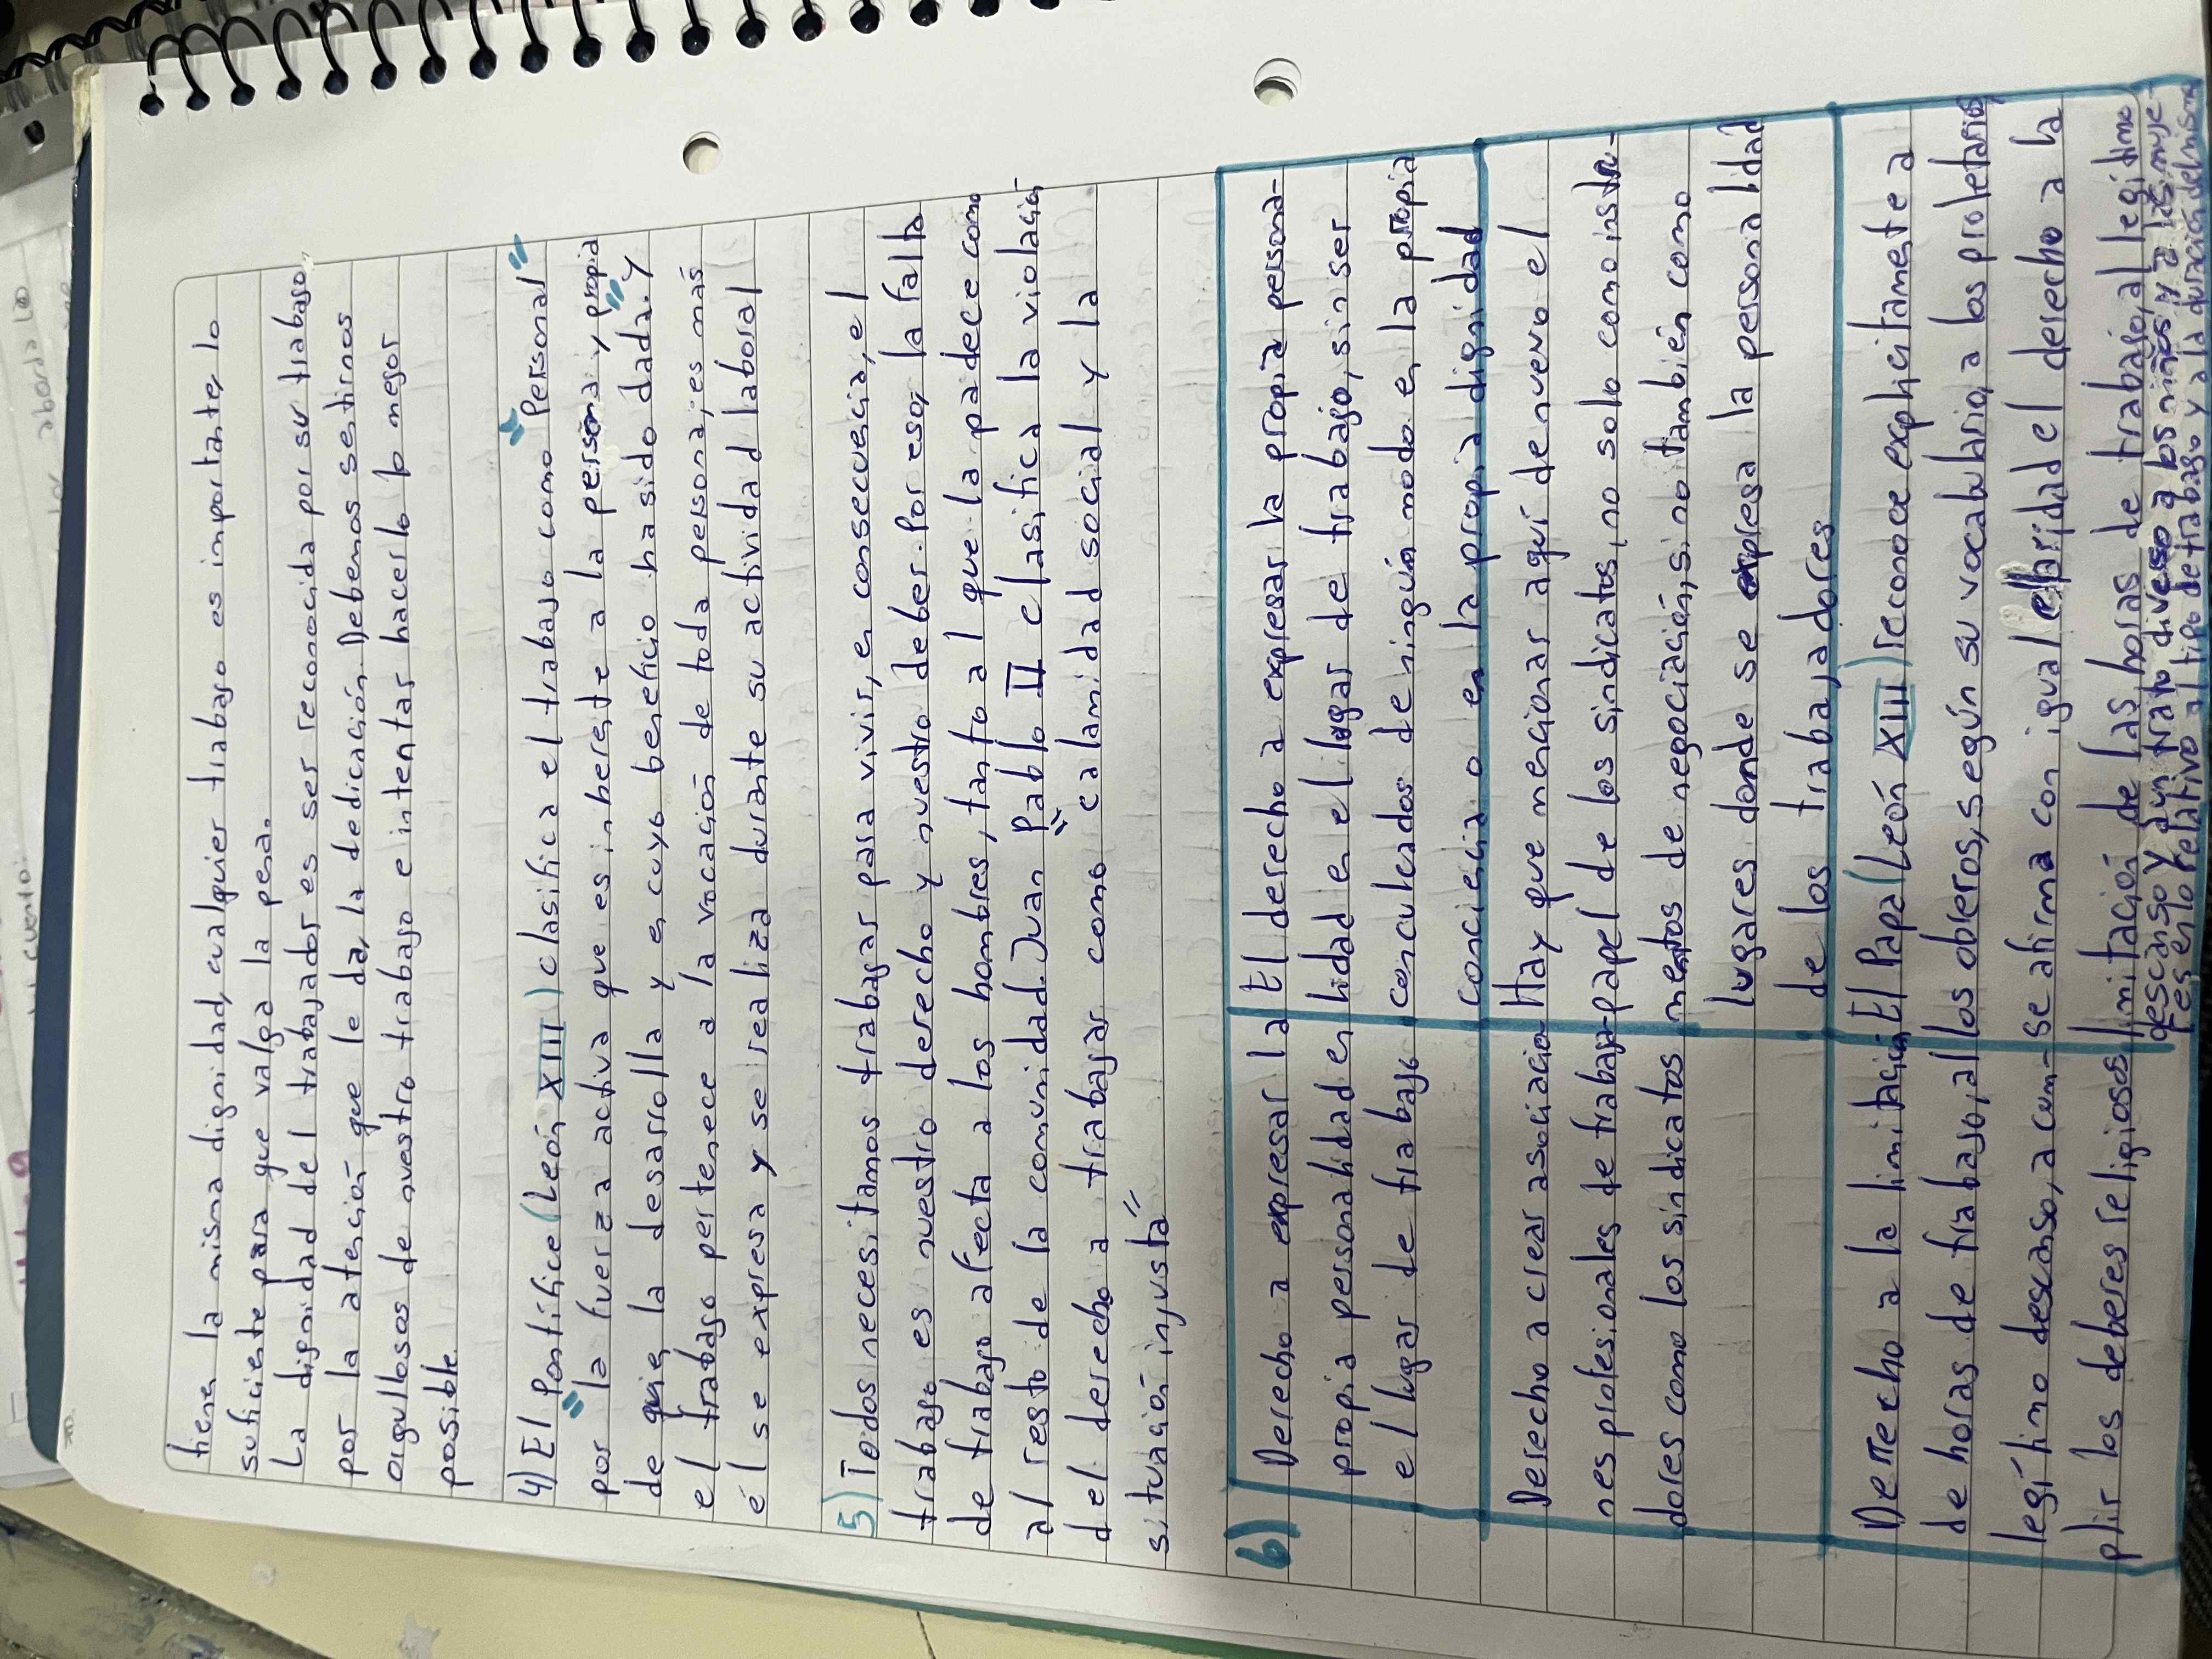 tiene la misma dignidad, cualquier trabajo es importante, lo
suficiente para que valga la pena.
La dignidad del trabajador es ser reconocida por su trabajo,
por la atención que le da, la dedicación. Debemos sentirnos
orgullosos de nuestro trabajo e intentar hacerlo lo mejor
posible.
4) El Pontífice (León XIII) clasifica el trabajo como "Personal"
"por la fuerza activa que es inherente a la persona y propia
de quien la desarrolla y en cuyo beneficio ha sido dada." y
el trabajo pertenece a la vocación de toda persona; es más
él se expresa y se realiza durante su actividad laboral
5) Todos necesitamos trabajar para vivir, en consecuencia, el
trabajo es nuestro derecho y nuestro deber. Por eso, la falta
de trabajo afecta a los hombres, tanto al que la padece como
al resto de la comunidad. Juan Pablo II clasifica la violación
del derecho a trabajar como "calamidad social y la
situación injusta"
6)
Derecho a expresar la
propia personalidad en
el lugar de trabajo
El derecho a expresar la propia persona-
lidad en el lugar de trabajo, sin ser
conculcados de ningún modo en la propia
conciencia o en la propia dignidad
Derecho a crear asociacio-
nes profesionales de trabaja-
dores como los sindicatos
Hay que mencionar aquí de nuevo el
papel de los sindicatos, no solo como instru-
mentos de negociación, sino también como
lugares donde se expresa la personalidad
de los trabajadores
Derecho a la limitación
de horas de trabajo, al
legítimo descanso, a cum-
plir los deberes religiosos
El Papa (León XIII) reconoce explícitamente a
los obreros, según su vocabulario, a los proletarios,
se afirma con igual claridad el derecho a la
limitación de las horas de trabajo, al legítimo
descanso y a un trato diverso a los niños y a las muje-
res en lo relativo al tipo de trabajo y a la duración del mismo